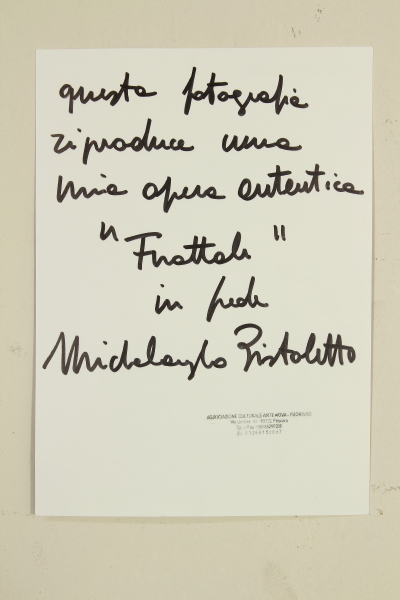 questa fotografia
riproduce una
mia opera autentica
"Frattale"
in fede
Michelangelo Pistoletto
ASSOCIAZIONE CULTURALE ARTE NOVA - PADRIVIO